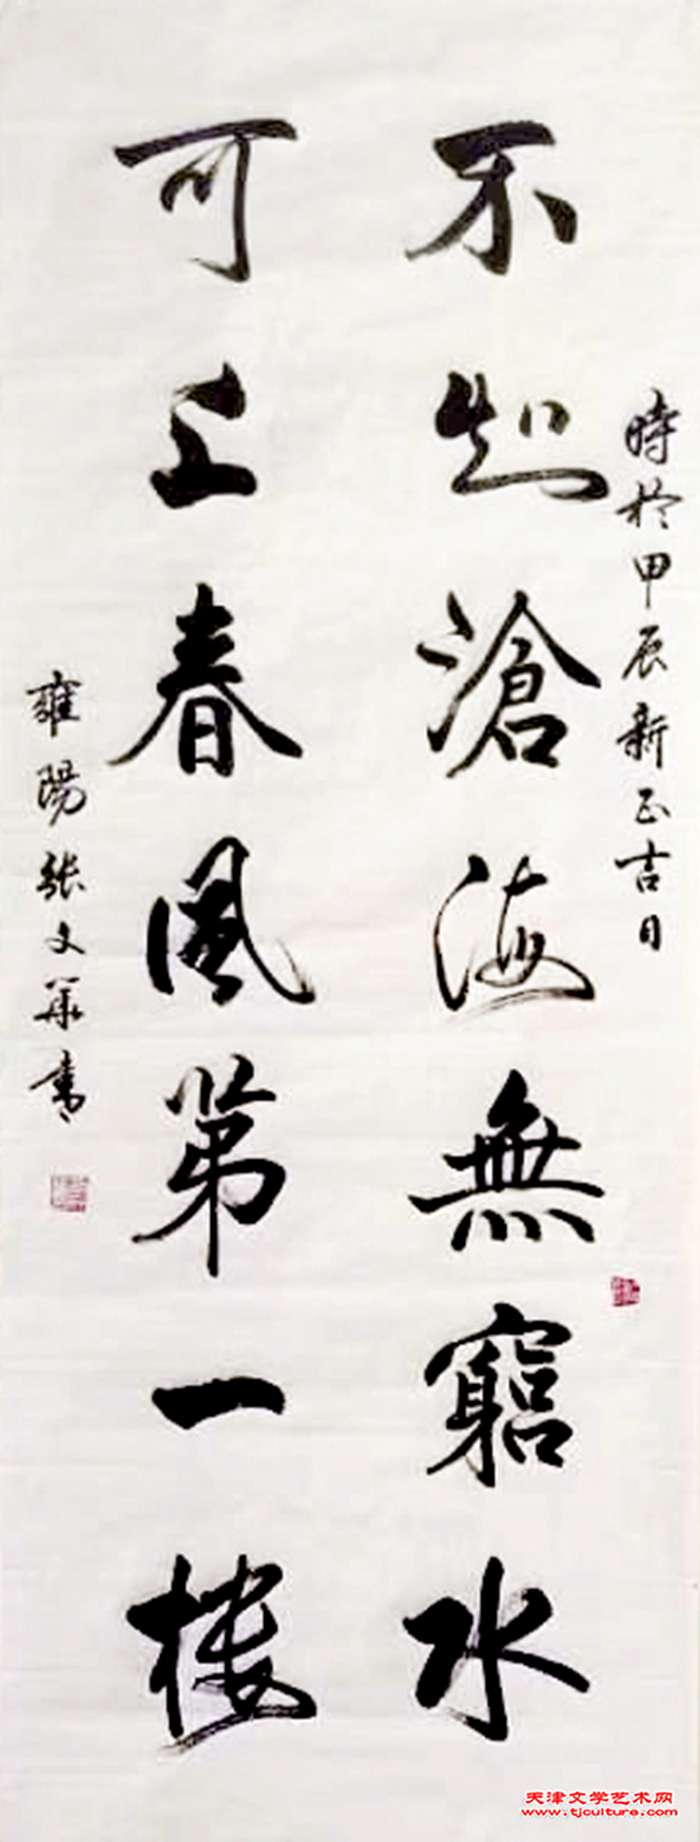 時於甲辰新正吉日
不知滄海無窮水
可上春風第一楼
雍陽张文華書
天津文学艺术网
www.tjculture.com